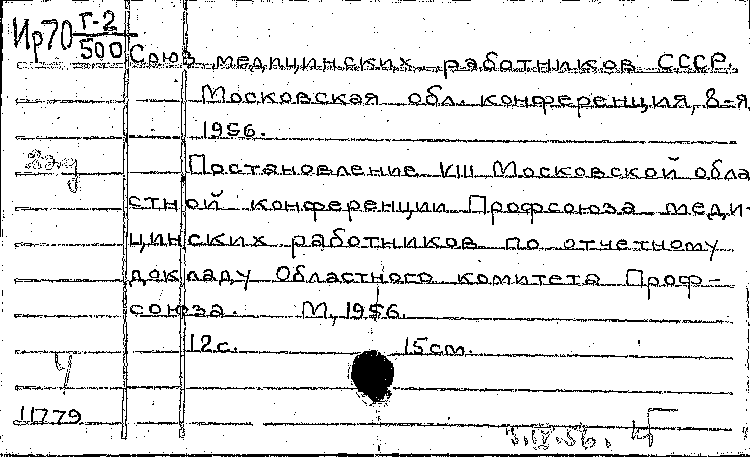 Ир70 Г-2/500
Союз медицинских работников СССР.
Московская обл. конференция, 8-я
1956.
Постановление VIII Московской обла
стной конференции Профсоюза меди-
цинских работников по отчетному
докладу Областного комитета Проф-
союза. М, 1956.
12с. 15см.
Ч
11779